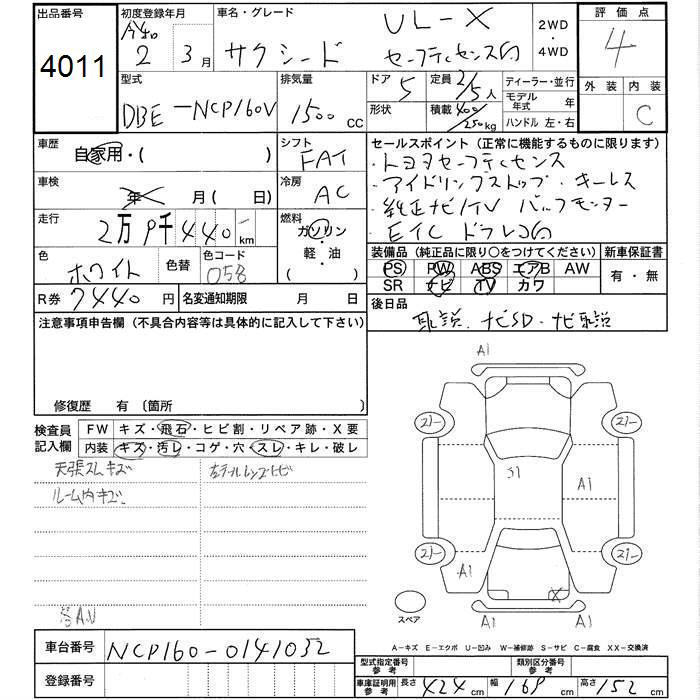 出品番号
4011
初度登録年月
2 3月
車名・グレード
UL-X
サクシード セーフティセンス付
2WD
・
4WD
評価点
4
外装 内装
C
型式
DBE-NCP160V
排気量
1500 CC
ドア
5
形状
定員 2/5人
積載 400/250kg
ディーラー・並行
モデル年式 年
ハンドル 左・右
車歴
自家用・( )
シフト
FAT
車検
年 月( 日)
冷房
AC
走行
2万9千440km
燃料
ガソリン
・
軽・油
( )
色
ホワイト
色替
色コード
058
R券 7440円
名変通知期限 月 日
セールスポイント(正常に機能するものに限ります)
・トヨタセーフティセンス
・アイドリングストップ・キーレス
・純正ナビ/TV バックモニター
・ETC ドラレコ付
装備品(純正品に限り○をつけてください)
新車保証書
PS PW ABS エアB AW
SR ナビ TV カワ
有・無
後日品
取説、ナビSD・ナビ取説
注意事項申告欄(不具合内容等は具体的に記入して下さい)
修復歴 有(箇所 )
検査員記入欄
FW キズ・飛石・ヒビ割・リペア跡・X要
内装 キズ・汚レ・コゲ・穴・スレ・キレ・破レ
天張スレキズ
ルーム内キズ
左テールレンズヒビ
A1
S1
A1
A1
A1
A1
X
スペア
A-キズ E-エクボ U-凹み W-補修跡 S-サビ C-腐食 XX-交換済
車台番号 NCP160-0141032
登録番号
型式指定番号 参考
類別区分番号 参考
車庫証明用 参考 長さ 424cm 幅 169cm 高さ 152cm